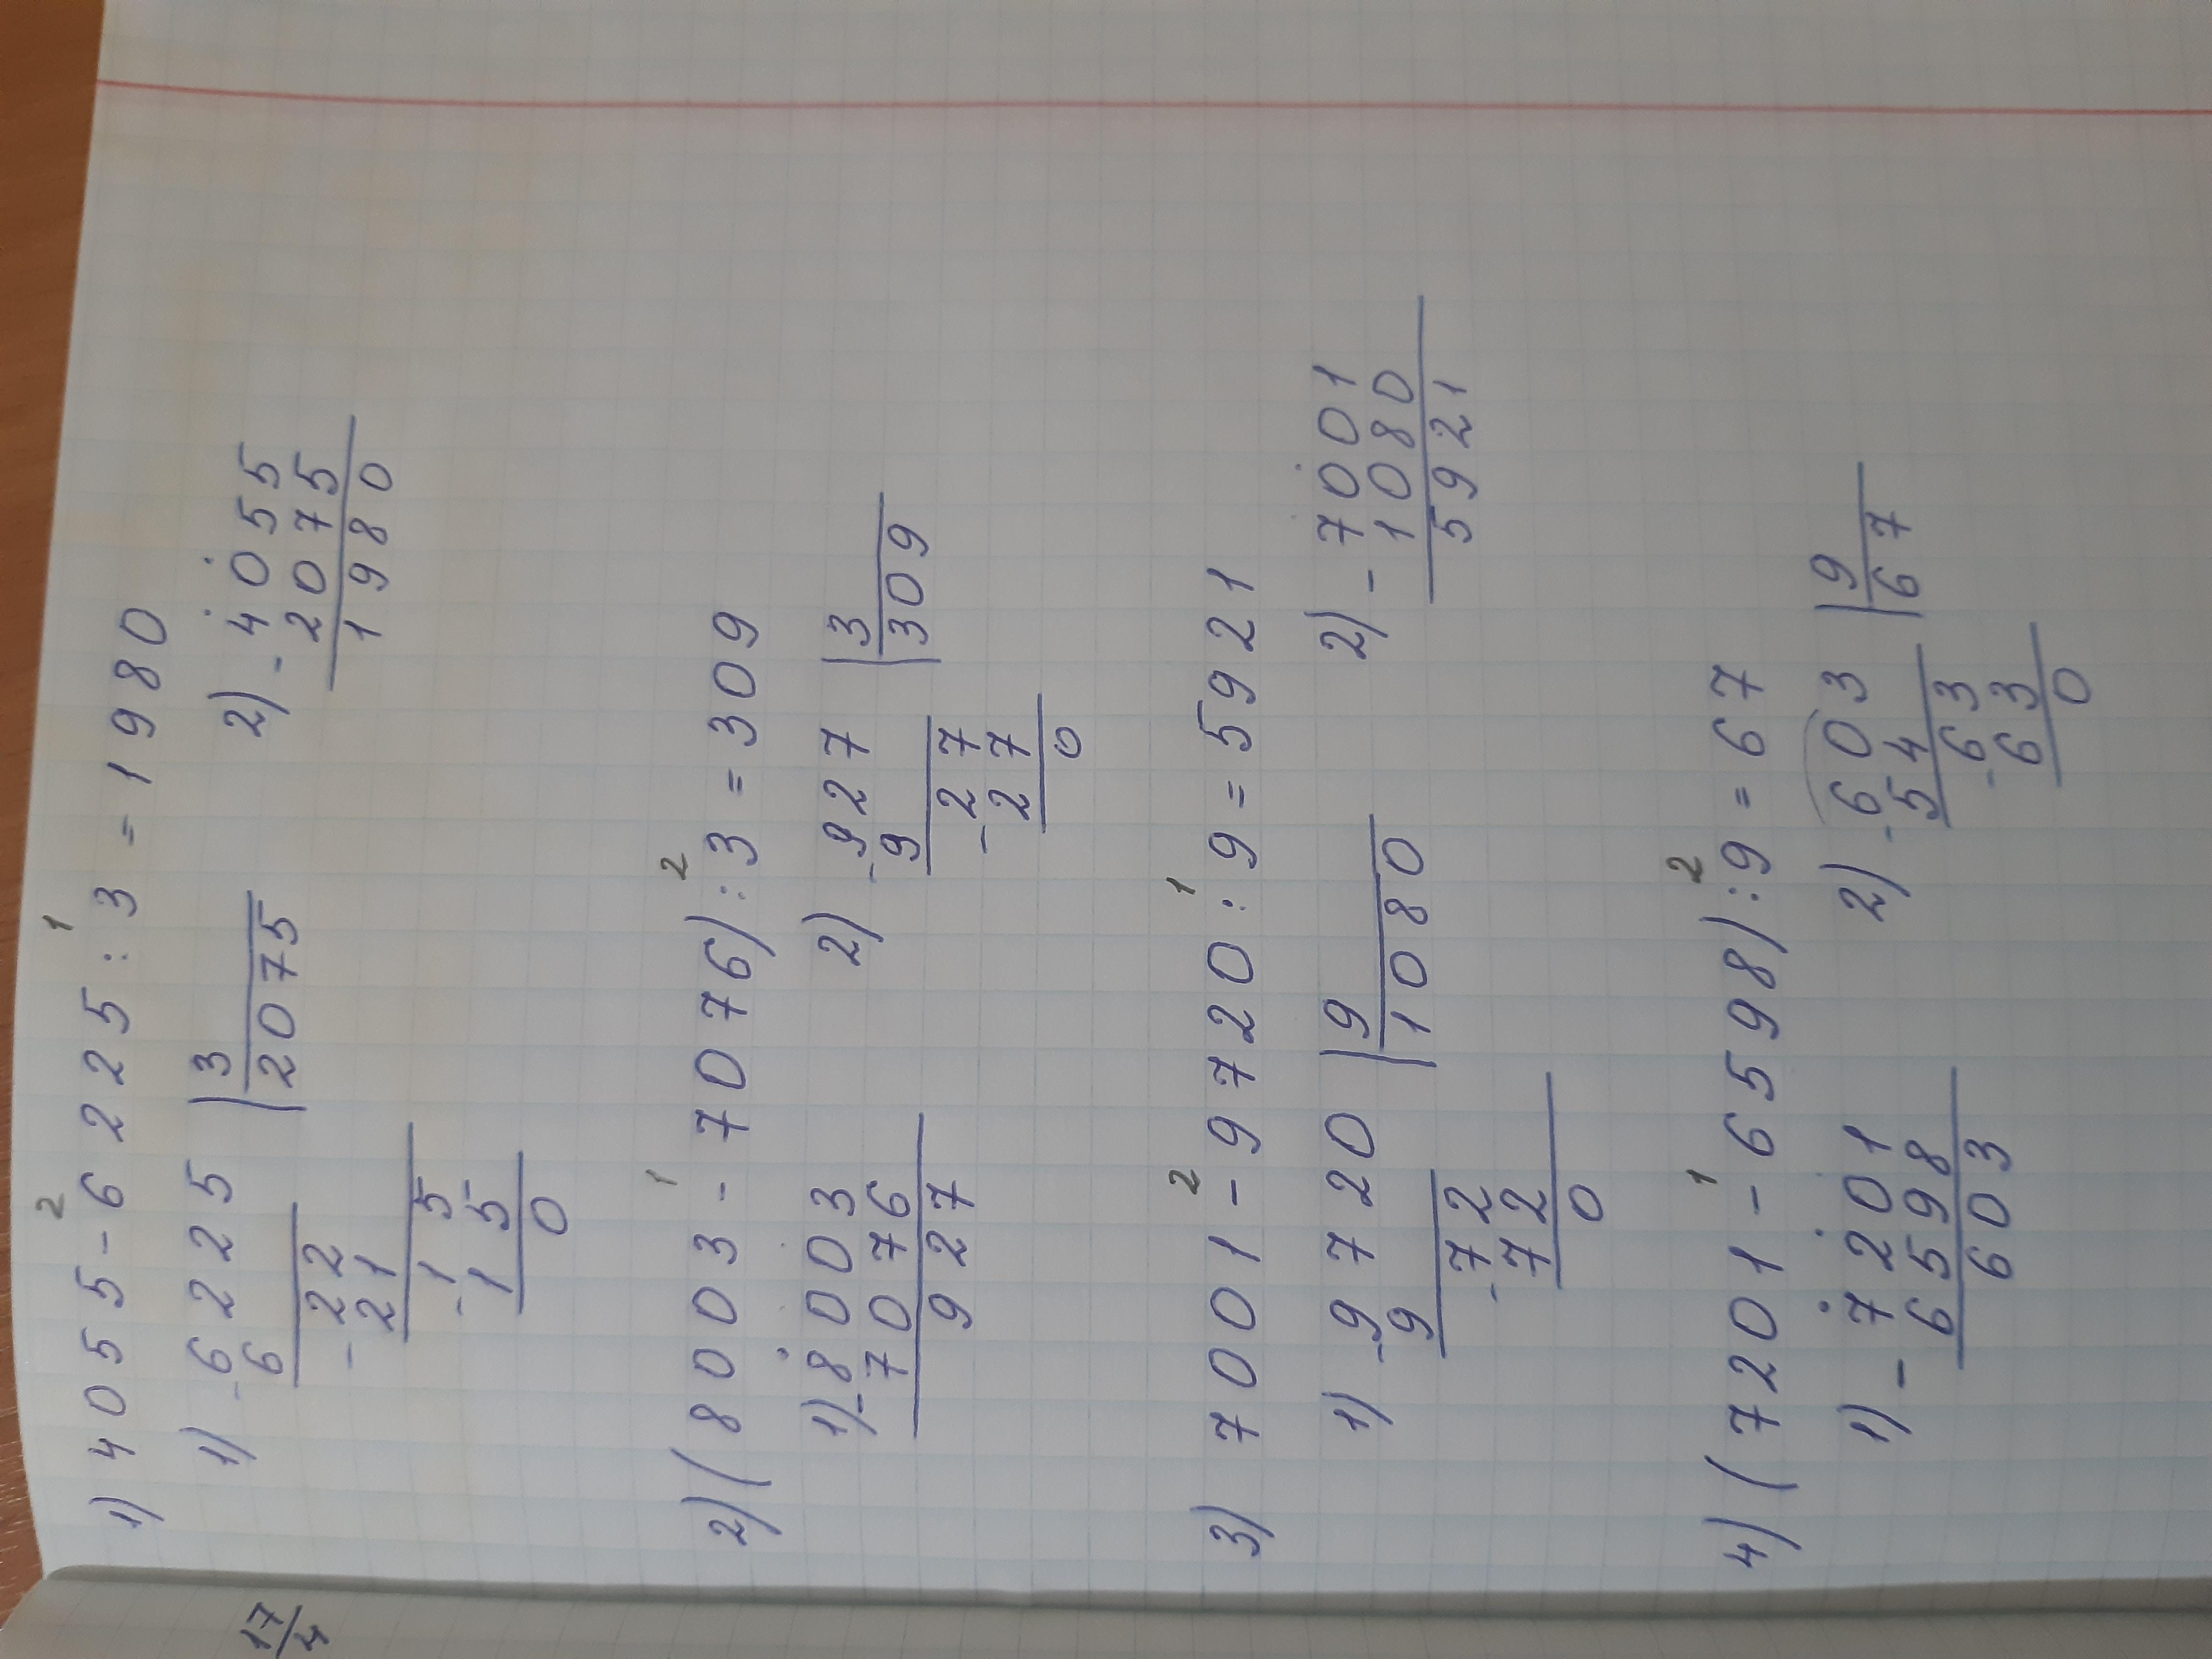 1) 4055-6225:3=1980
2 1
1) -6225 |3
6 2075
-22
21
-15
15
0
2) -4055
2075
1980
2) (8003-7076):3=309
1 2
1) -8003
7076
927
2) -927 |3
9 309
-27
27
0
3) 7001-9720:9=5921
2 1
1) -9720 |9
9 1080
-72
72
0
2) -7001
1080
5921
4) (7201-6598):9=67
1 2
1) -7201
6598
603
2) -603 |9
54 67
-63
63
0
17/4